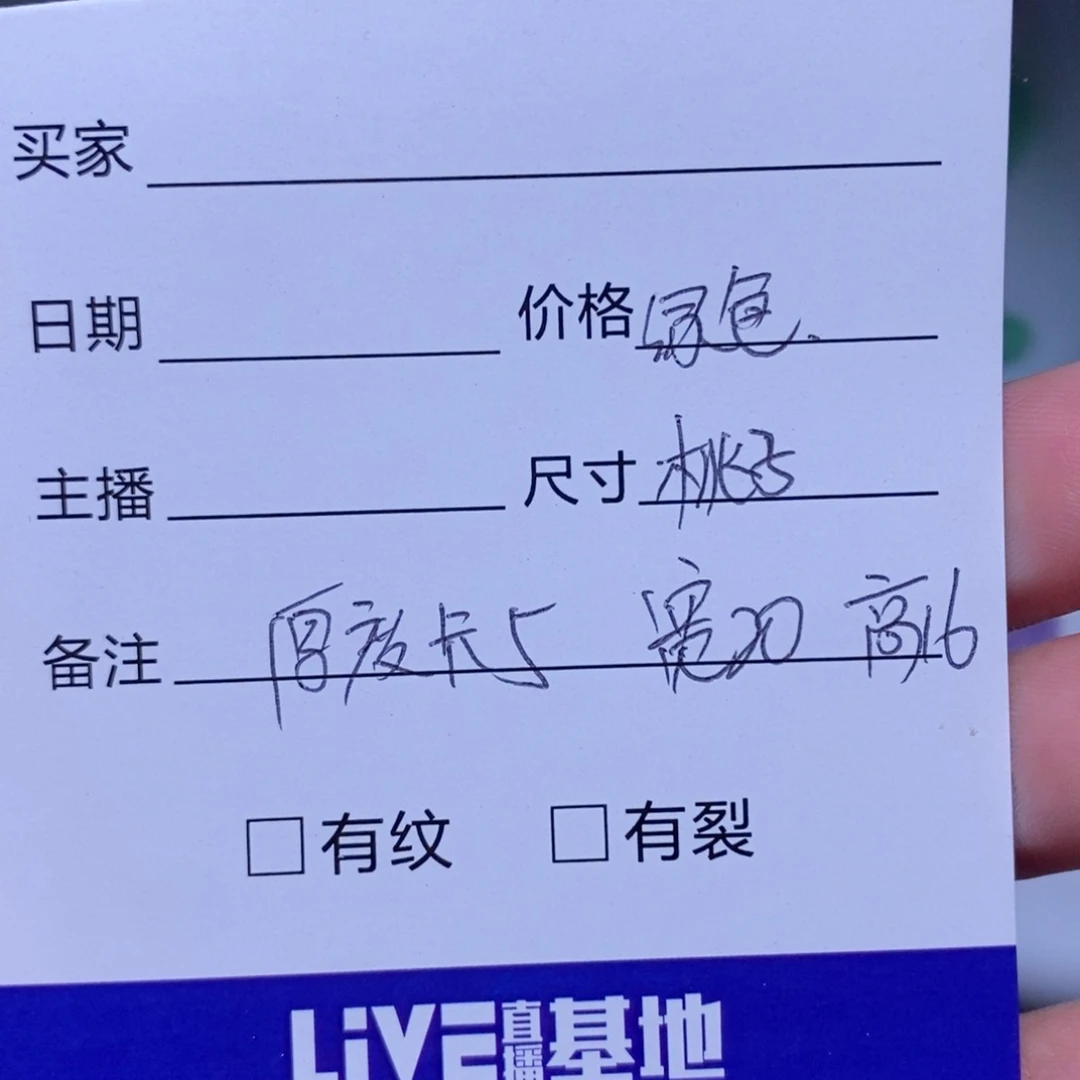 买家
日期 价格 绿色.
主播 尺寸 桃子
备注 厚度卡5 宽20 高16
□有纹 □有裂
LiVE直播基地